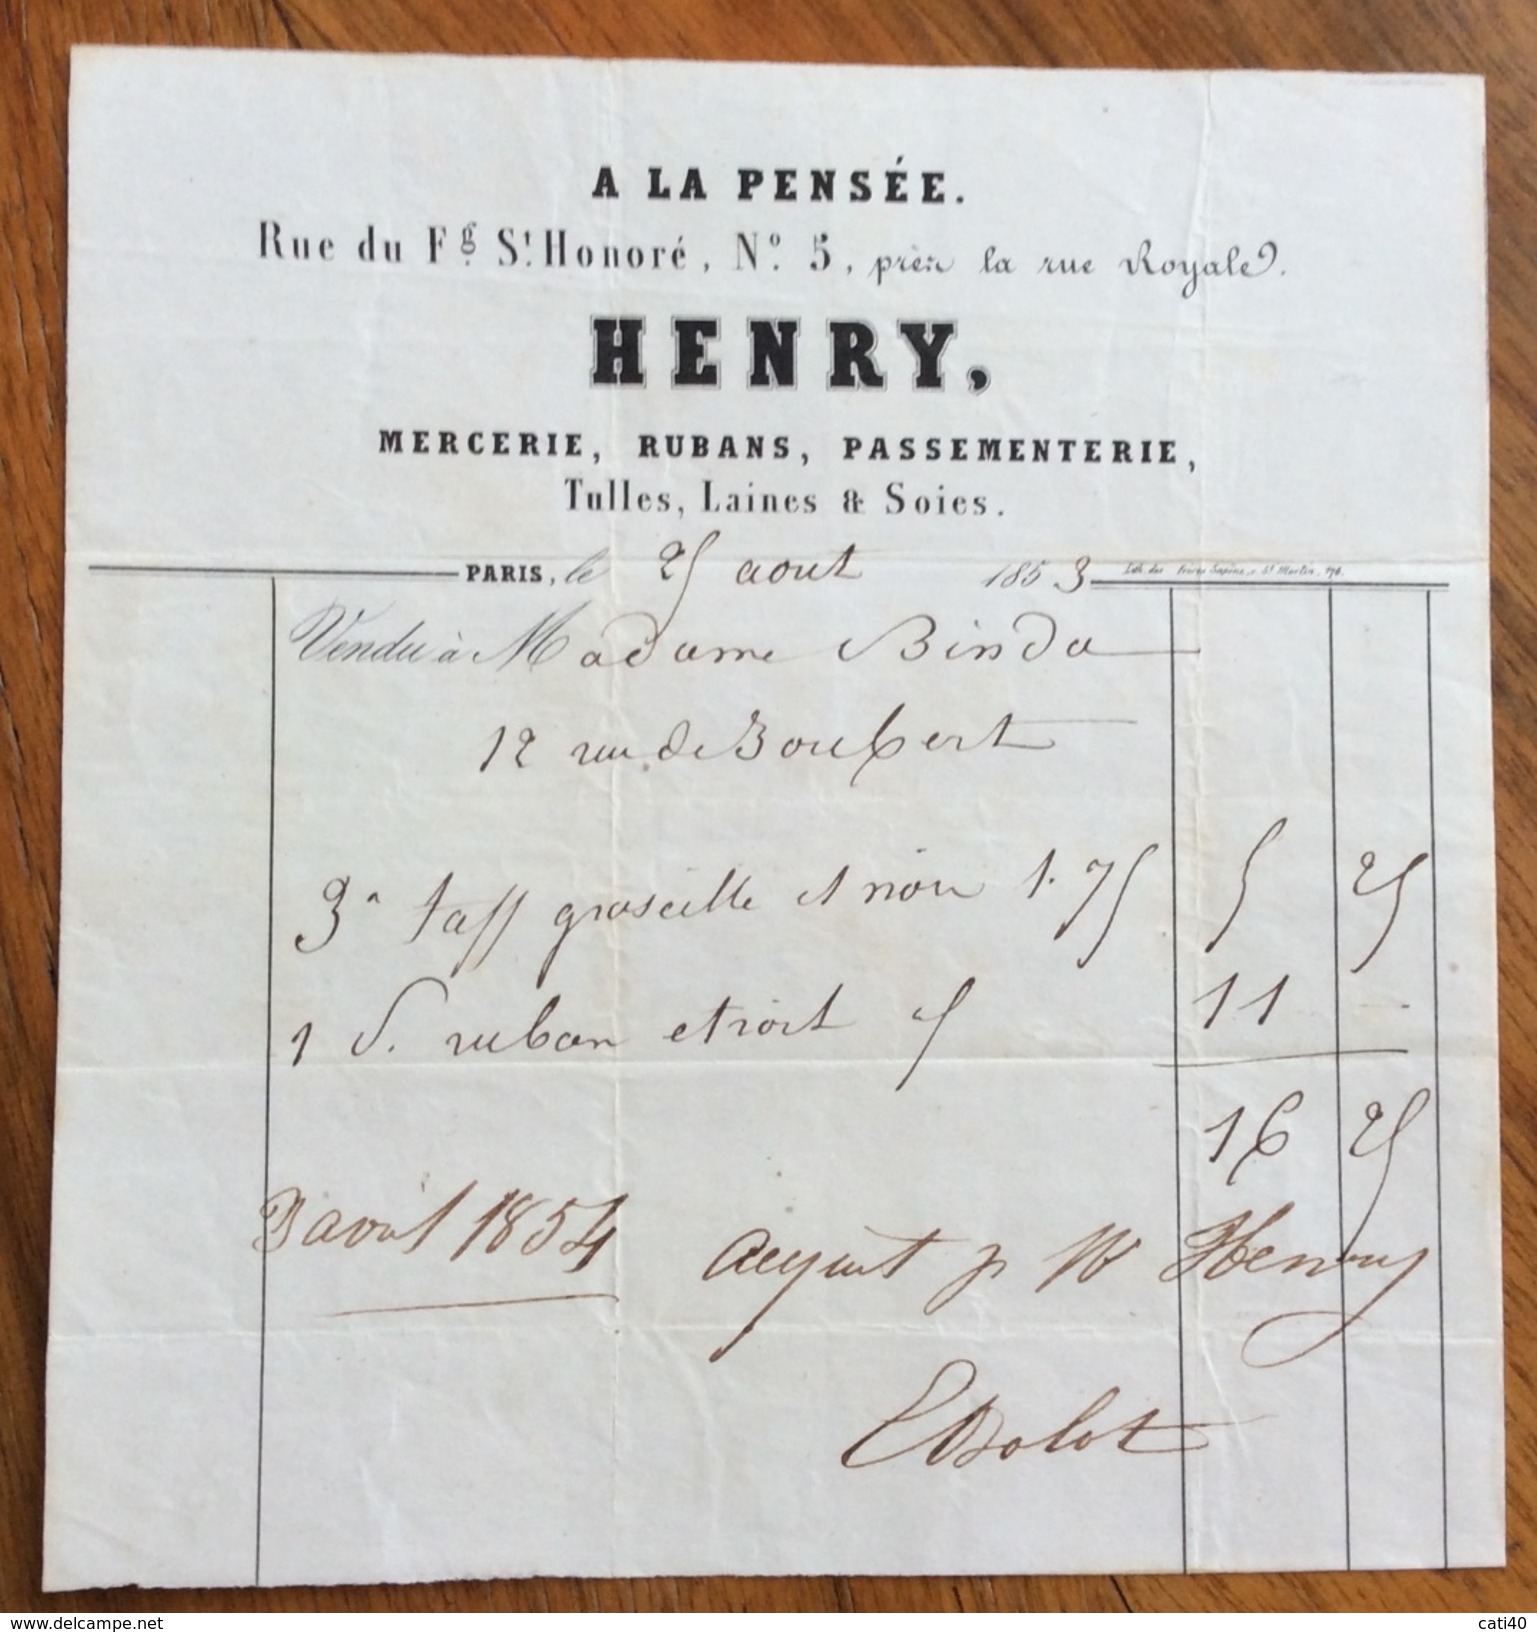 A LA PENSÉE.
Rue du Fg. St. Honoré, No. 5, près la rue Royale.
HENRY,
MERCERIE, RUBANS, PASSEMENTERIE,
Tulles, Laines & Soies.
PARIS, le 25 aout 1853
Lith. des Frères r. St Martin,
Vendu à Madame Binda
12 rue de Joubert
3m taff groseille et noir 1.75 5 25
1 ruban etroit 11 -
16 25
3 avril 1854 acquit p Mr Henry